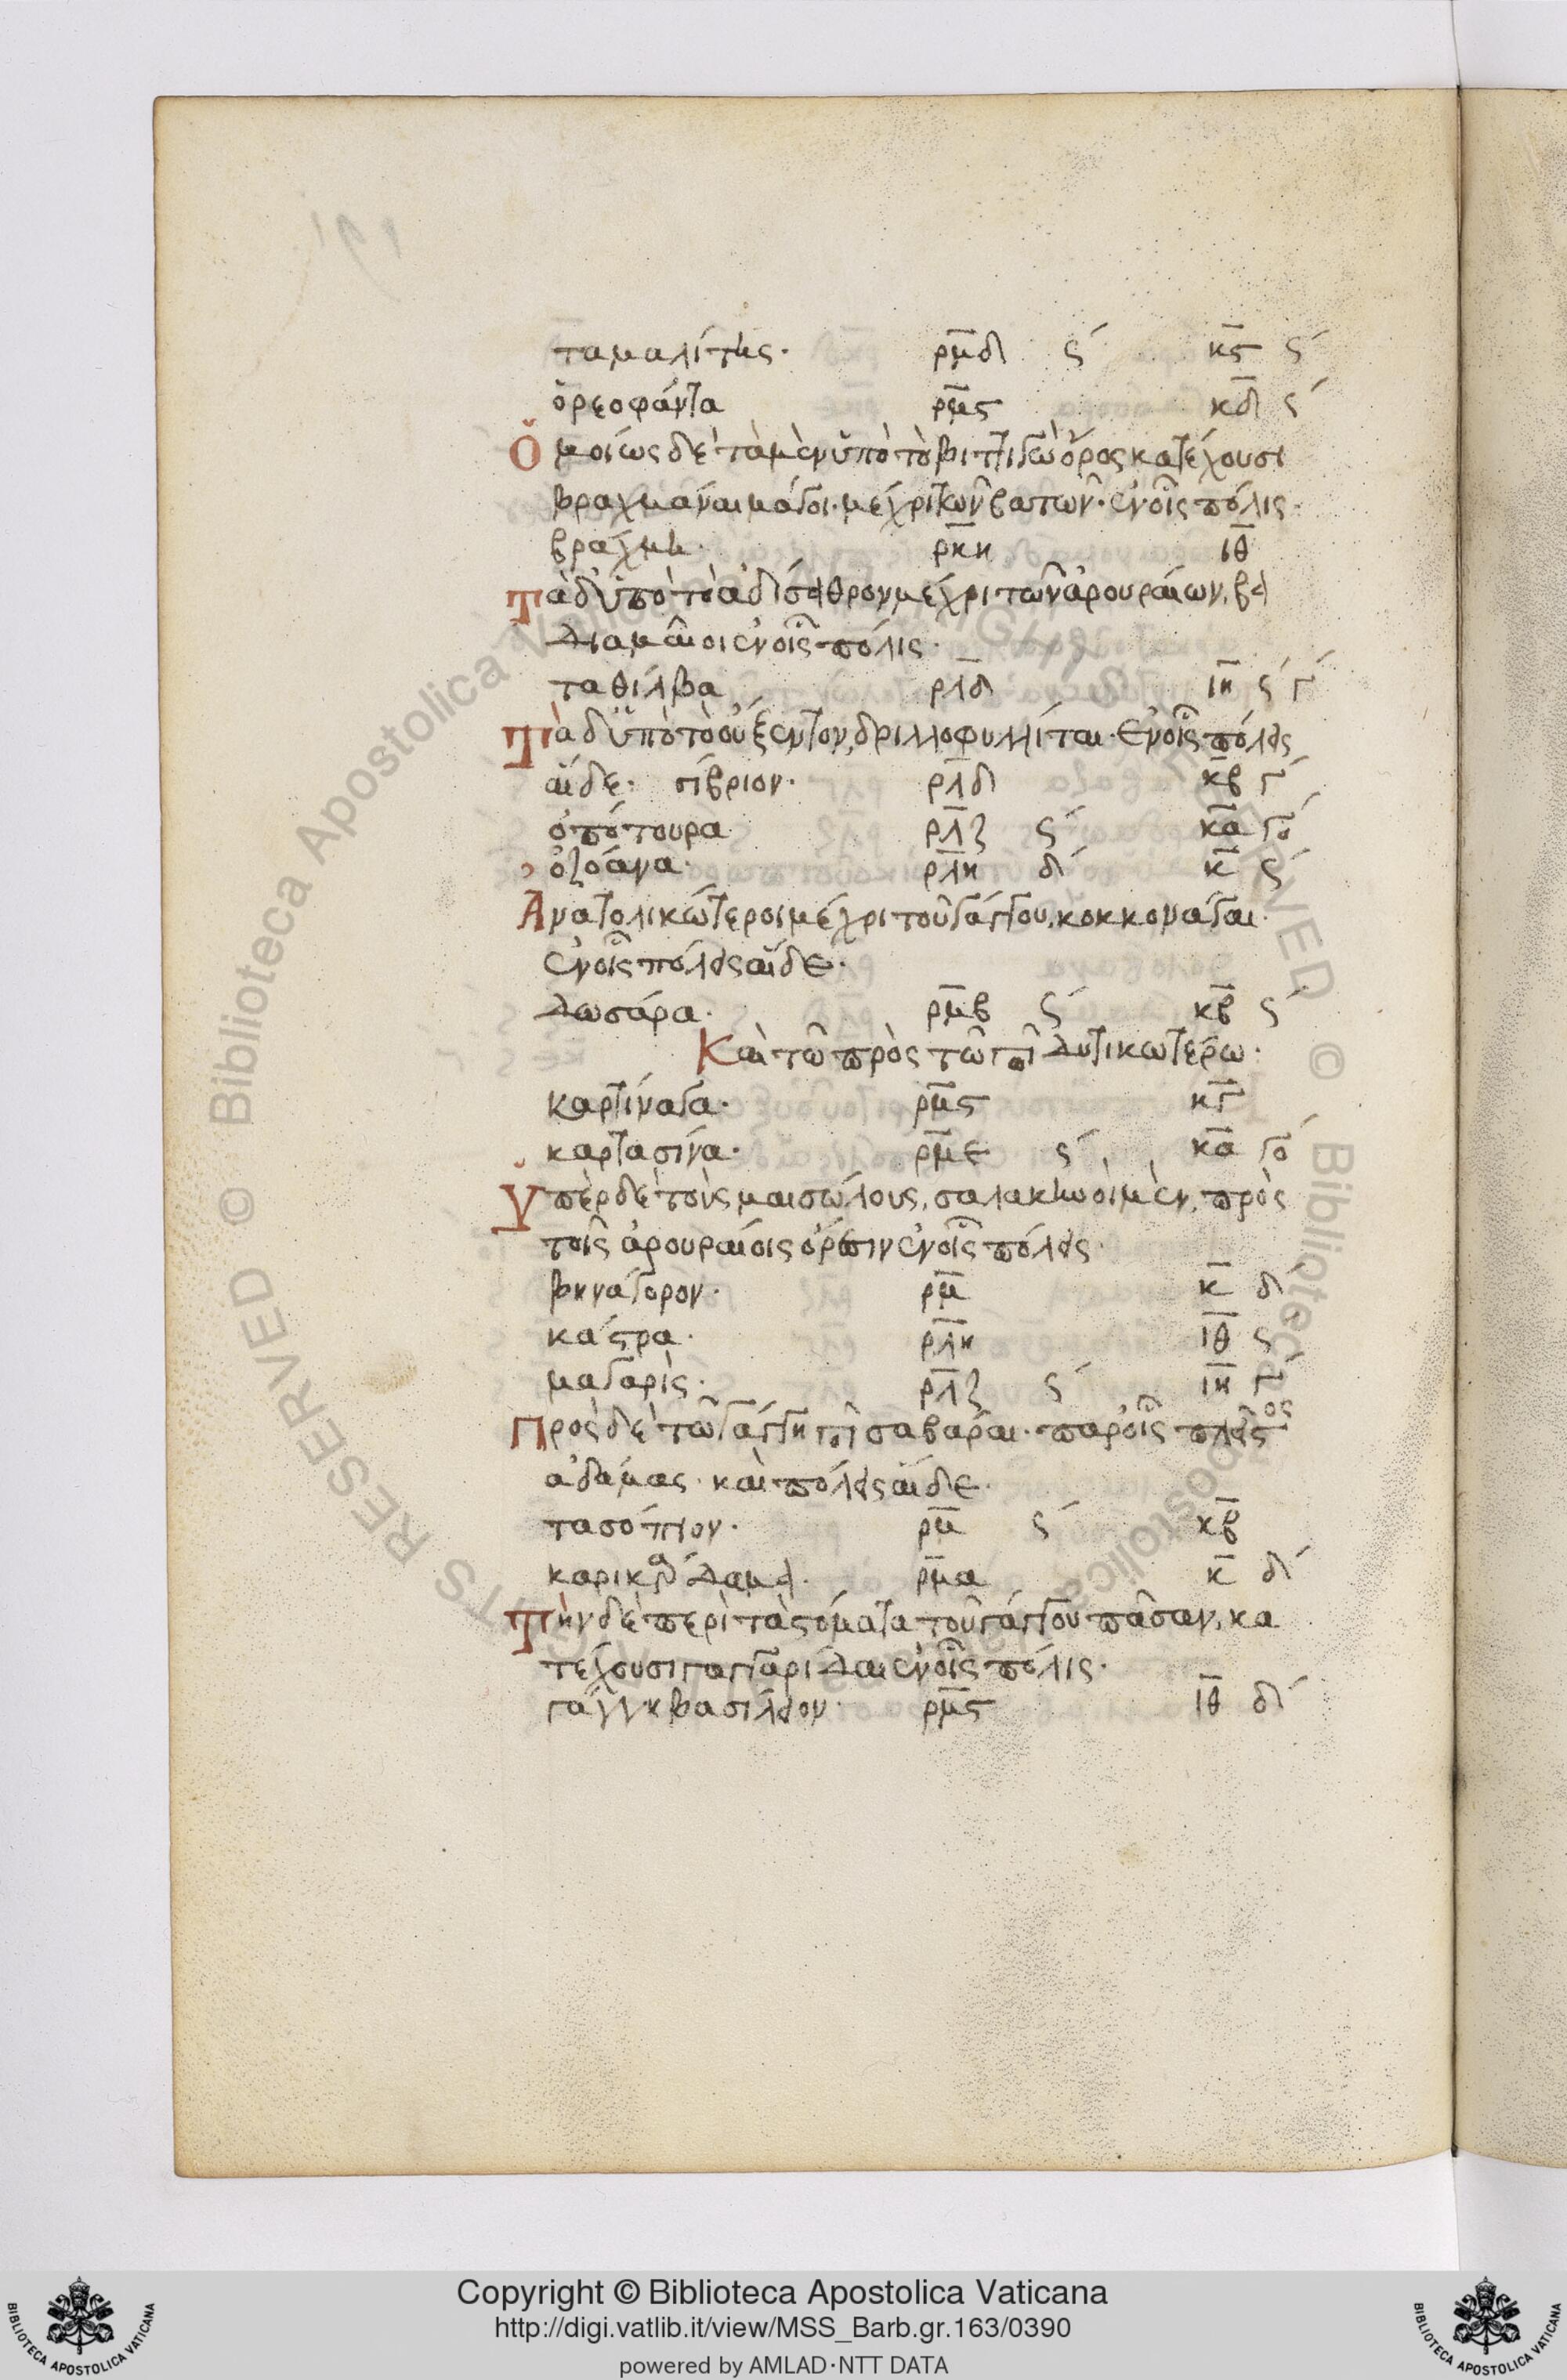 ταμαλίτης· ρμδ ς´ κς ς´
ὀρεοφάντα ρμς κδ ς´
Ὁμοίως δὲ τὰ μὲν ὑπὸ τὸ βιττιγὼ ὄρος κατέχουσι
βραχμάναι μάγοι· μέχρι τῶν βατῶν· ἐν οἷς πόλις·
βράχμη· ρκη ιθ
Τὰ δ' ὑπὸ τὸ ἀδίσαθρον μέχρι τῶν ἀρουραίων, βα
διαμαῖοι ἐν οἷς πόλις·
ταθίλβα ρλδ ιη ς´ γ´
Τὰ δ' ὑπὸ τὸ οὔξεντον, δριλλοφυλλίται· ἐν οἷς πόλεις
αἵδε· σίβριον· ρλδ κβ γ´
ὀπότουρα ρλζ ς´ κα γο´
ὀζόανα· ρλη δ´ κ ς´
Ἀνατολικώτεροι μέχρι τοῦ γάγγου, κοκκονάγαι·
ἐν οἷς πόλεις αἵδε·
δωσάρα· ρμβ ς´ κβ ς´
Καὶ τῷ πρὸς τῷ ποταμῷ δυτικωτέρω·
καρτίναγα· ρμς κγ
καρτασίνα· ρμε ς´ κα γο´
Ὑπὲρ δὲ τοὺς μαισώλους, σαλακηνοὶ μὲν, πρὸς
τοῖς ἀρουραίοις ὄρεσιν ἐν οἷς πόλεις·
βηνάγορον· ρμ κ δ´
κάστρα· ρλη ιθ ς´
μαγαρίς· ρλζ ς´ ιη γ´
Πρὸς δὲ τῷ γάγγῃ ποταμῷ σαβαρᾶι· παρ' οἷς πλεῖστος
ἀδάμας· καὶ πόλεις αἵδε·
τασόπιον· ρμ ς´ κβ
καρικάρδαμα· ρμα κ δ´
Τὴν δὲ περὶ τὰ στόματα τοῦ γάγγου πᾶσαν, κα
τέχουσι γαγγαρίδαι ἐν οἷς πόλις·
γάγγη βασίλειον· ρμς ιθ δ´
Copyright © Biblioteca Apostolica Vaticana
http://digi.vatlib.it/view/MSS_Barb.gr.163/0390
powered by AMLAD·NTT DATA